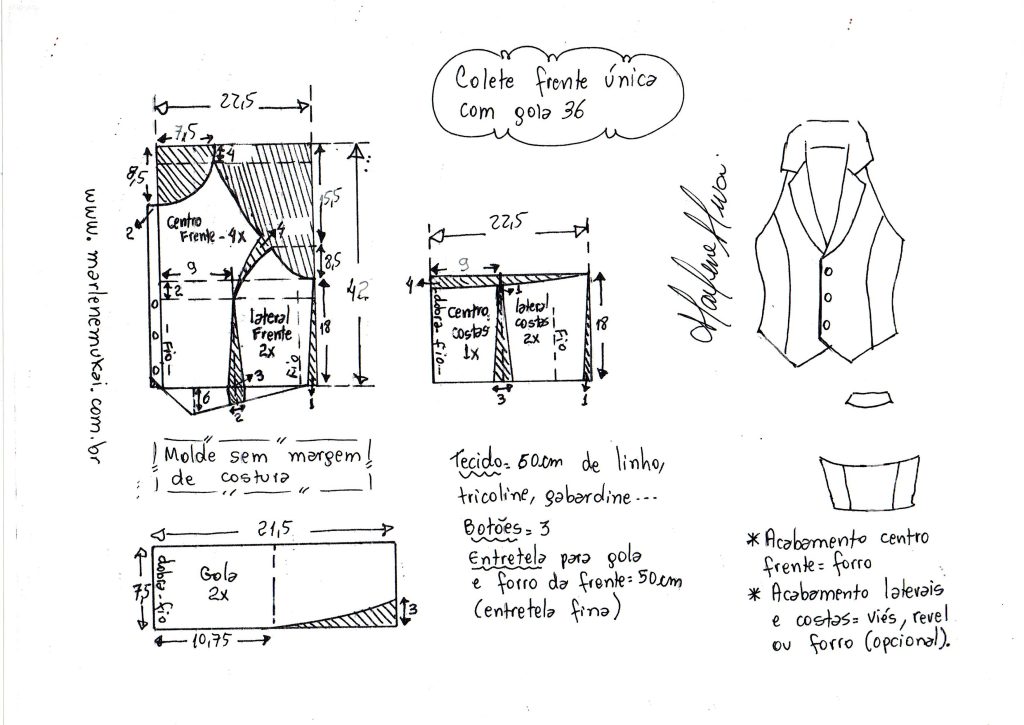 Colete frente única
com gola 36
22,5
7,5
4
8,5
2
Centro
Frente - 4x
4
15,5
8,5
42
9
2
lateral
Frente
2x
fio
fio
18
3
6
2
1
www.marlenemukai.com.br
22,5
9
4
1
dobra fio
Centro
costas
1x
lateral
costas
2x
Fio
18
3
1
Marlene Mukai
Molde sem margem
de costura
21,5
7,5
dobra-fio
Gola
2x
3
10,75
Tecido= 50cm de linho,
tricoline, gabardine...
Botões= 3
Entretela para gola
e forro da frente= 50cm
(entretela fina)
* Acabamento centro
frente= forro
* Acabamento laterais
e costas= viés, revel
ou forro (opcional).